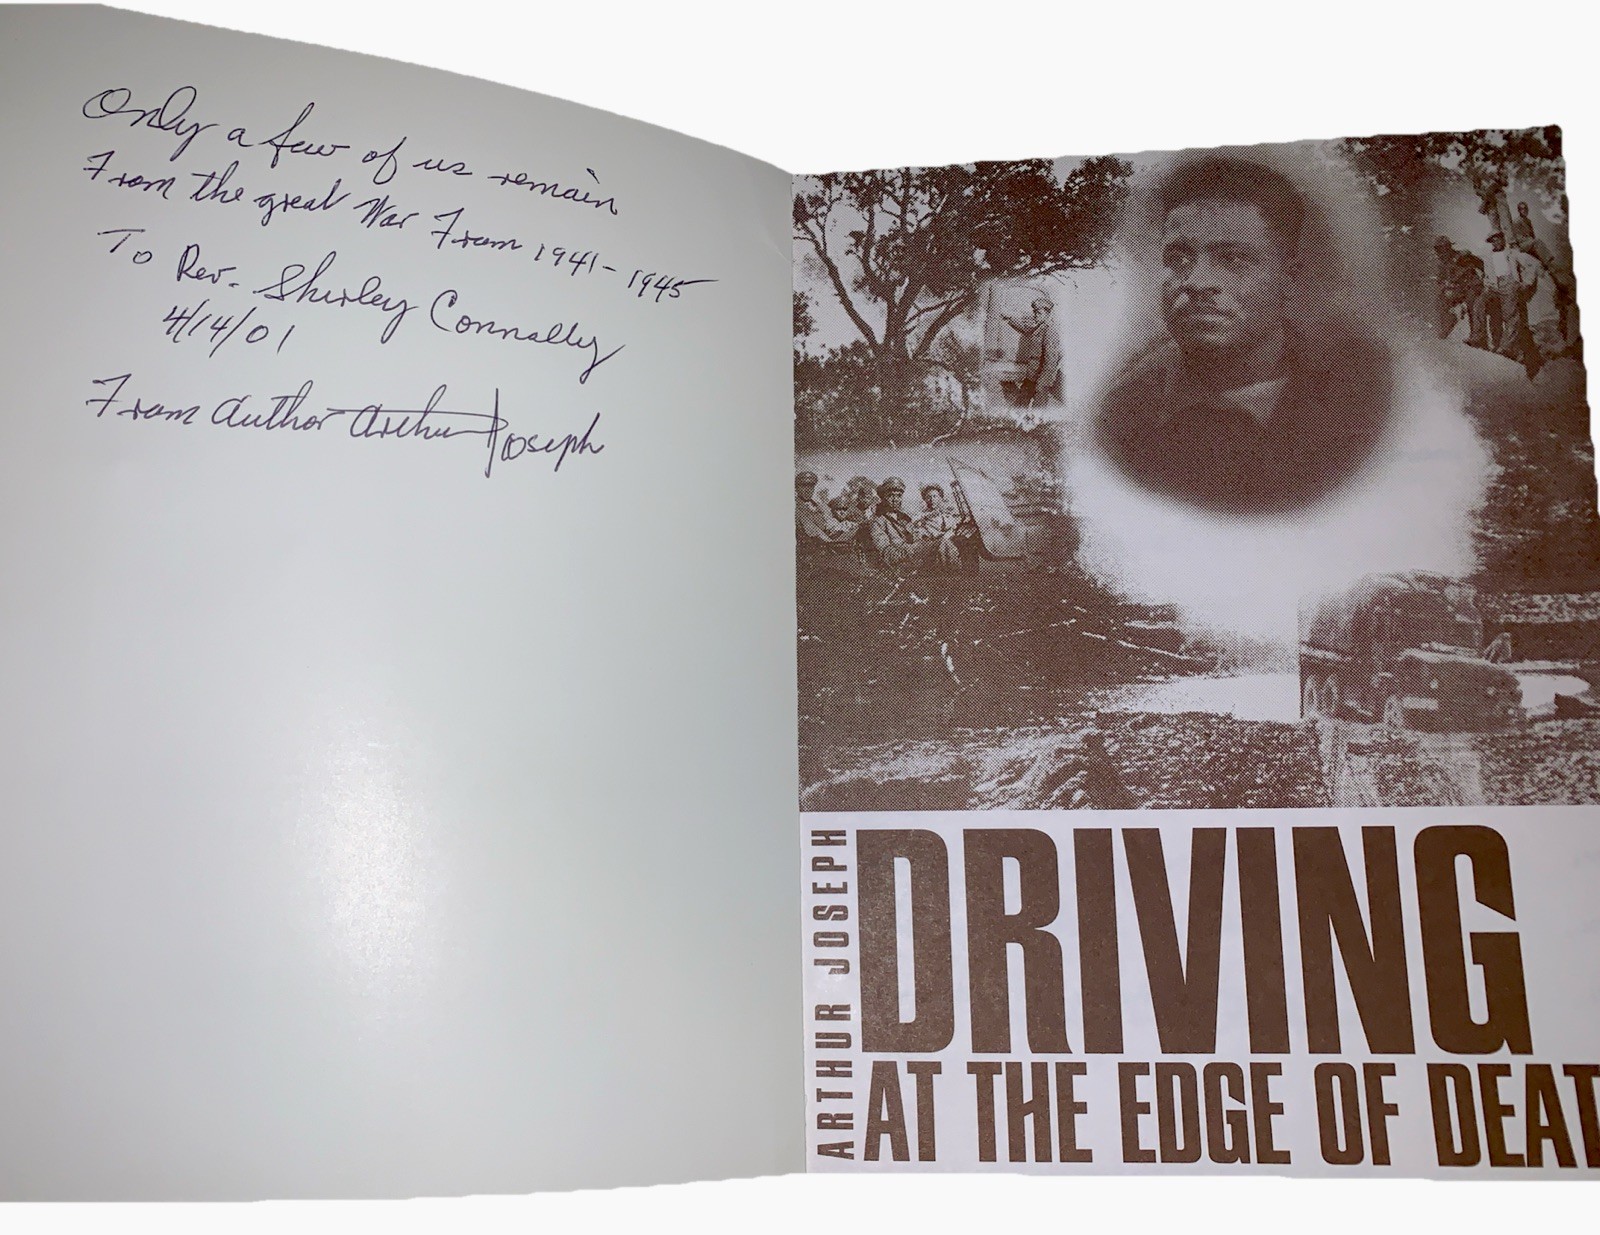 Only a few of us remain
From the great War From 1941-1945
To Rev. Shirley Connally
4/14/01
From Author Arthur Joseph
ARTHUR JOSEPH
DRIVING
AT THE EDGE OF DEAT